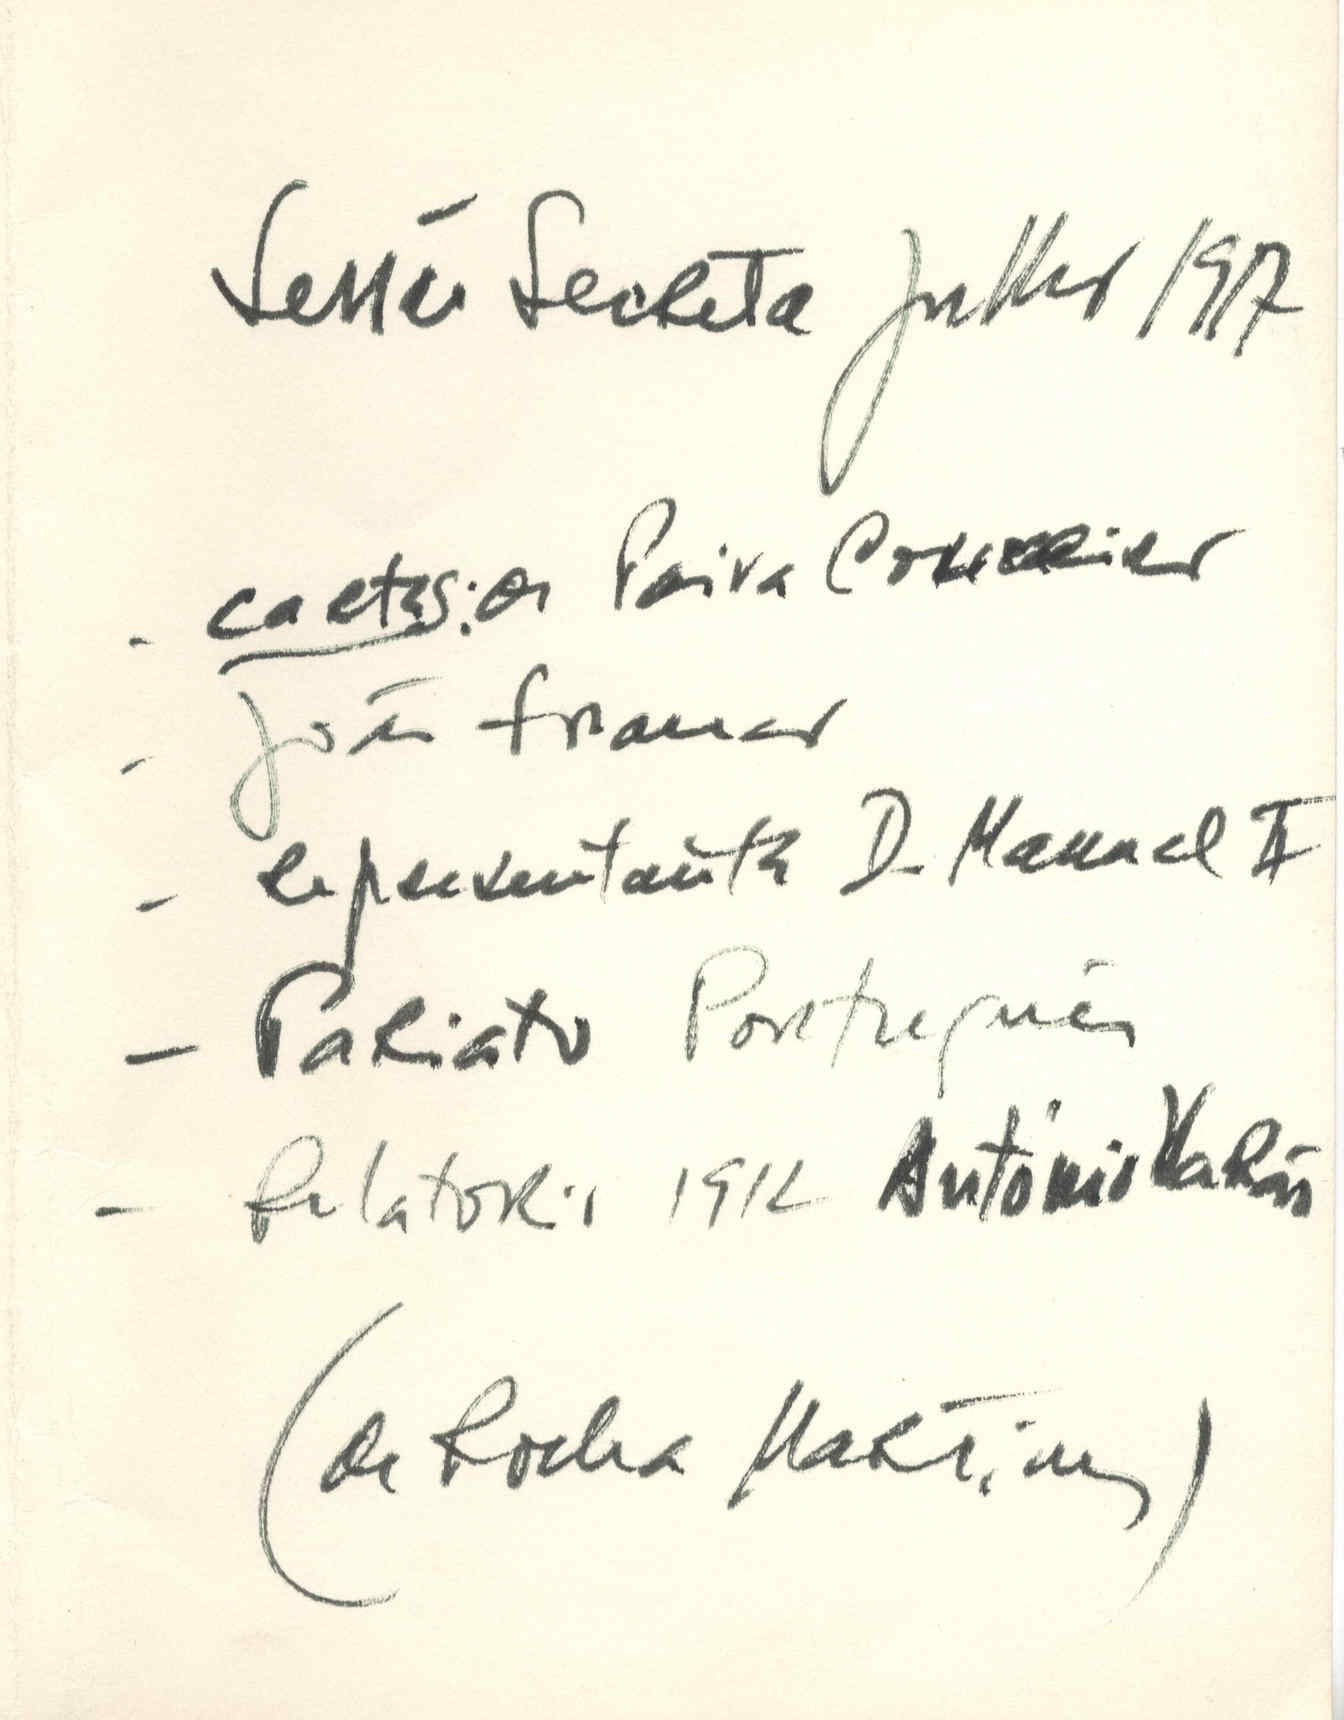 Sessão Secreta Julho 1917
- cartas: de Paiva Couceiro
- João Franco
- representante D. Manuel II
- Pariato Português
- Relatório 1912 António
(de Rocha Martins)